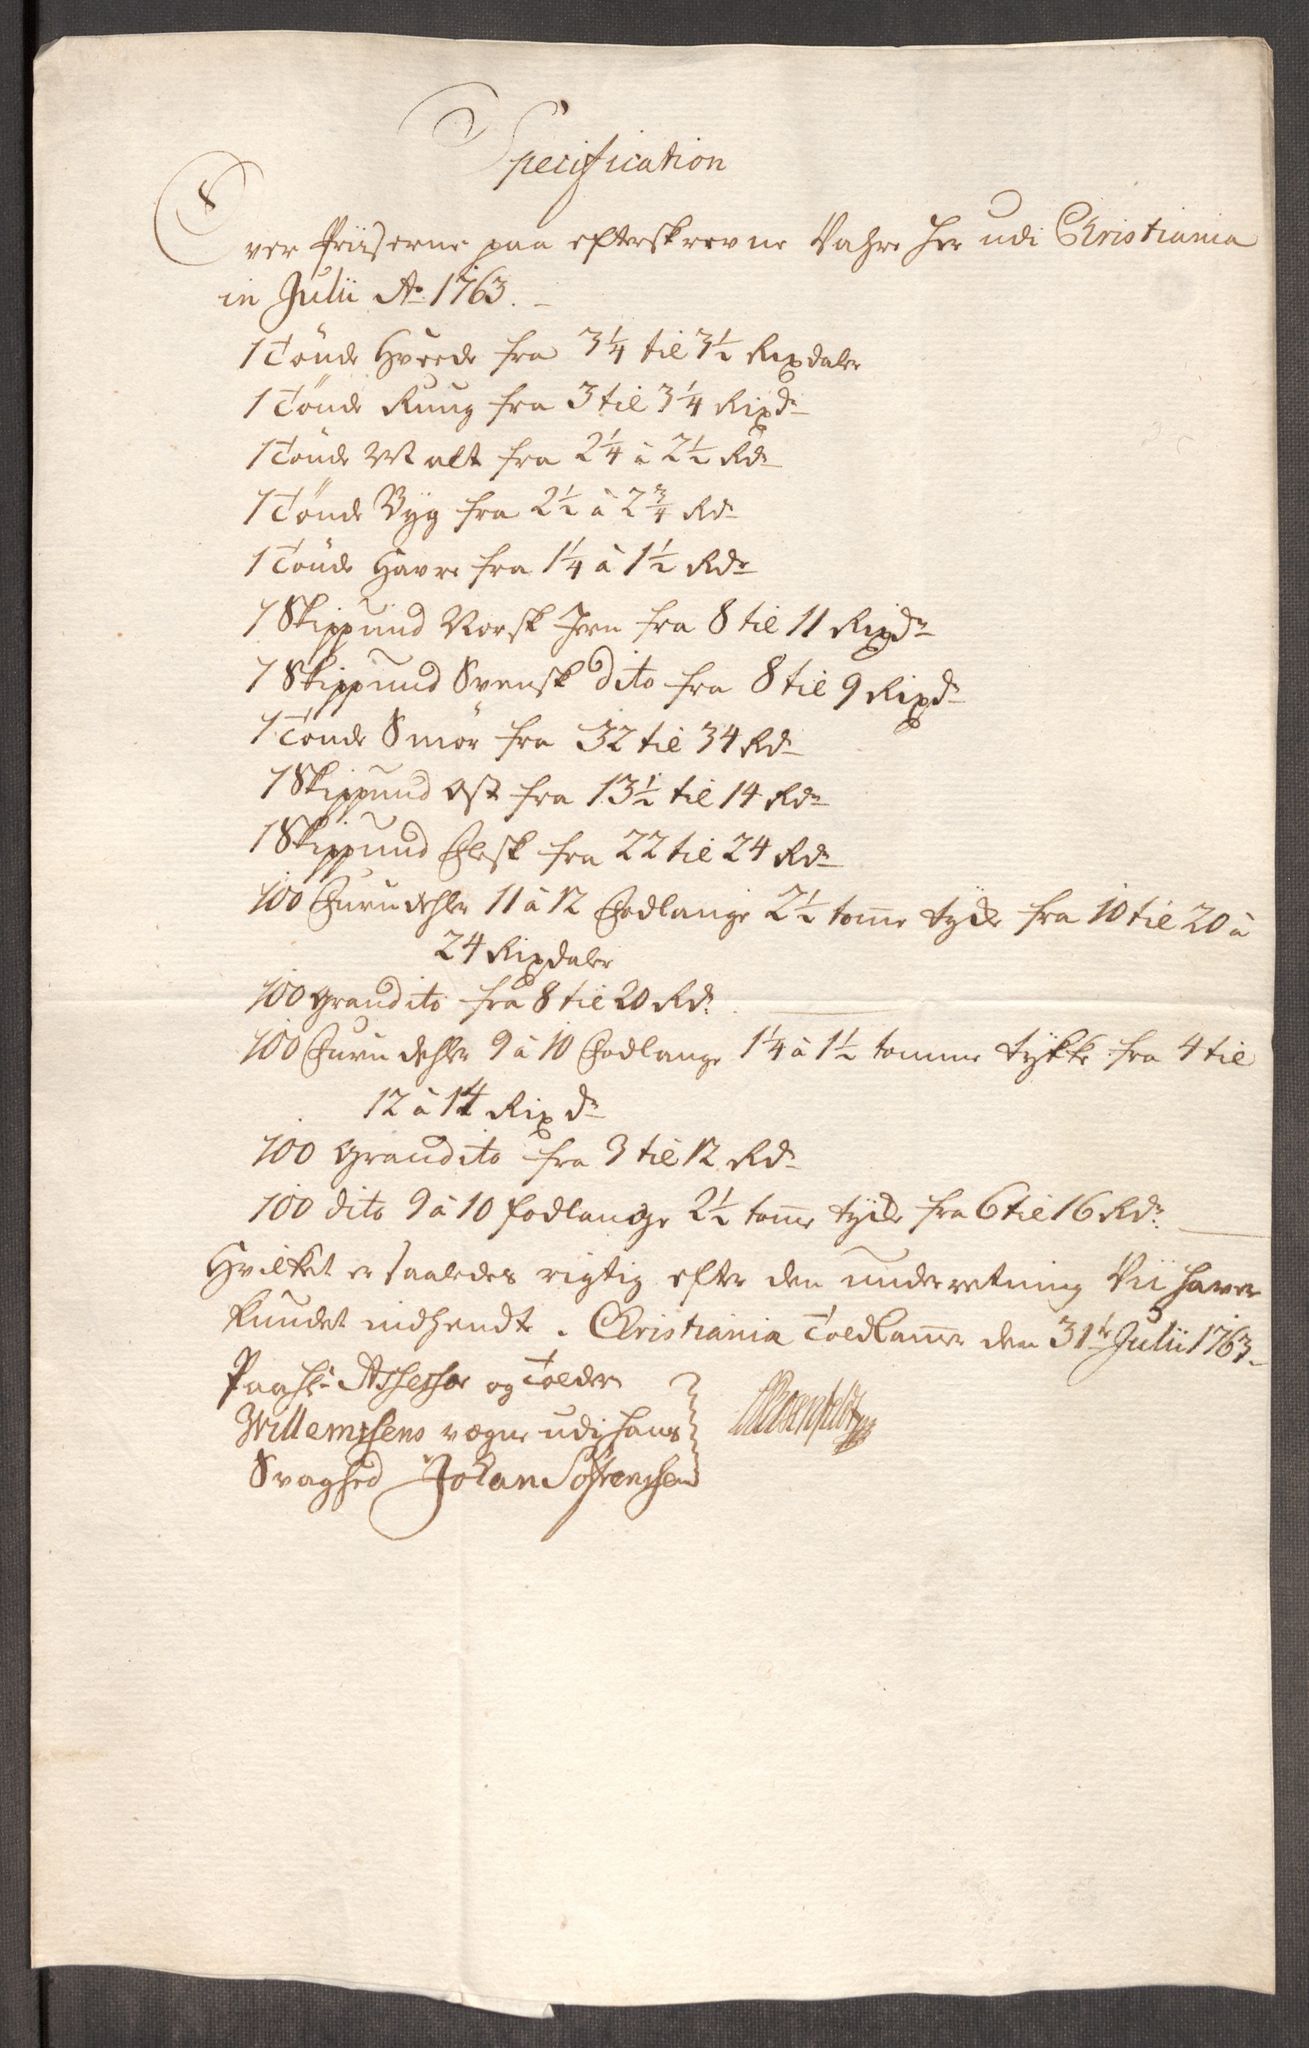 Specification
Over Priiserne paa efterskrevne Vahre her udi Christiania
in Julii Ao 1763.
1 Tönde Hveede fra 3¼ til 3½ Rixdaler
1 Tönde Ruug fra 3 til 3¼ Rixdr
1 Tönde Malt fra 2¼ à 2½ Rdr
1 Tönde Byg fra 2½ à 2¾ Rdr
1 Tönde Havre fra 1¼ à 1½ Rdr
1 Skippund Norsk Jern fra 8 til 11 Rixdr
1 Skippund Svensk dito fra 8 til 9 Rixdr
1 Tönde Smör fra 32 til 34 Rdr
1 Skippund Ost fra 13½ til 14 Rdr
1 Skippund Flesk fra 22 til 24 Rdr
100 Furu dehler 11 à 12 Fodlange 2½ tome tycke fra 10 til 20 à
24 Rixdaler
100 Gran dito fra 8 til 20 Rdr.
100 Furu dehler 9 à 10 Fodlange 1¼ à 1½ tomme tykke fra 4 til
12 à 14 Rixdr
100 Gran dito fra 3 til 12 Rdr
100 dito 9 à 10 fodlange 2½ tome tycke fra 6 til 16 Rdr.
Hvilket er saaledes rigtig efter den underretning Vii haver
kundet indhendte. Christiania Toldkamer den 31te Julii 1763.
Paa Hr Assessor og Tolder
Willemsens vegne udi hans
Svaghed Johan Sörensen